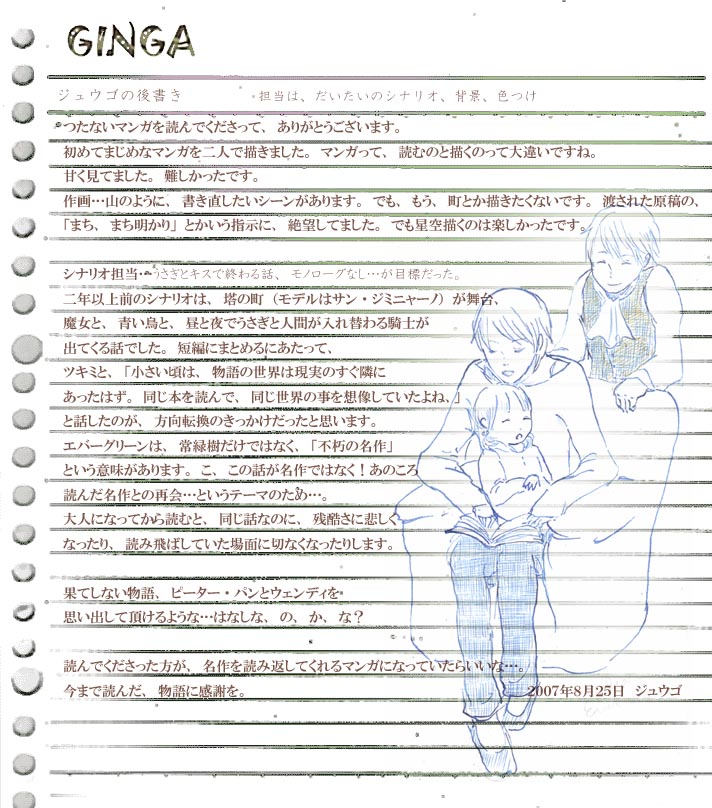 GINGA
ジュウゴの後書き　・担当は、だいたいのシナリオ、背景、色つけ
つたないマンガを読んでくださって、ありがとうございます。
初めてまじめなマンガを二人で描きました。マンガって、読むのと描くのって大違いですね。
甘く見てました。難しかったです。
作画…山のように、書き直したいシーンがあります。でも、もう、町とか描きたくないです。渡された原稿の、
「まち、まち明かり」とかいう指示に、絶望してました。でも星空描くのは楽しかったです。
シナリオ担当…うさぎとキスで終わる話、モノローグなし…が目標だった。
二年以上前のシナリオは、塔の町（モデルはサン・ジミニャーノ）が舞台、
魔女と、青い鳥と、昼と夜でうさぎと人間が入れ替わる騎士が
出てくる話でした。短編にまとめるにあたって、
ツキミと、「小さい頃は、物語の世界は現実のすぐ隣に
あったはず。同じ本を読んで、同じ世界の事を想像していたよね、」
と話したのが、方向転換のきっかけだったと思います。
エバーグリーンは、常緑樹だけではなく、「不朽の名作」
という意味があります。こ、この話が名作ではなく！あのころ
読んだ名作との再会…というテーマのため…。
大人になってから読むと、同じ話なのに、残酷さに悲しく
なったり、読み飛ばしていた場面に切なくなったりします。
果てしない物語、ピーター・パンとウェンディを
思い出して頂けるような…はなしな、の、か、な？
読んでくださった方が、名作を読み返してくれるマンガになっていたらいいな…。
今まで読んだ、物語に感謝を。
2007年8月25日　ジュウゴ